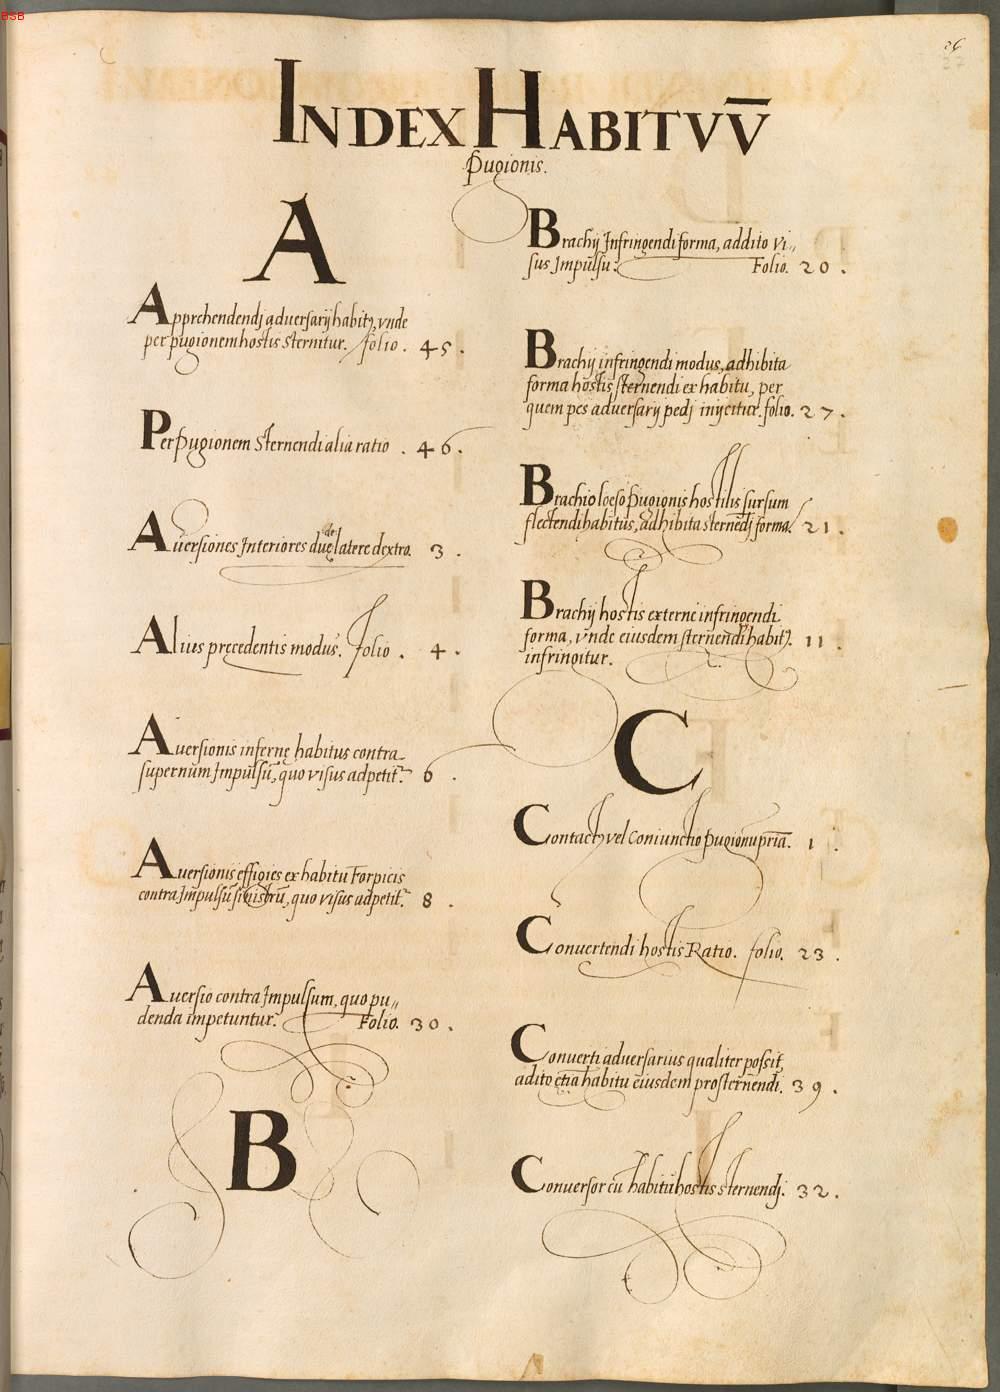 BSB
26
37
INDEX HABITVV̄
Pugionis.
A
Apprehendendj aduersarij habitꝰ, vnde
per pugionem hostis sternitur. folio. 45.
Per pugionem sternendi alia ratio. 46.
Auersiones Interiores duę de latere dextro. 3.
Alius precedentis modus. folio. 4.
Auersionis infernę habitus contra
supernum Impulsū, quo visus adpetitr. 6.
Auersionis effigies ex habitu Forpicis
contra Impulsū sinistrū, quo visus adpetitr. 8.
Auersio contra Impulsum, quo pu„
denda impetuntur. Folio. 30.
B
Brachij Infringendi forma, addito vi„
sus Impulsu: Folio. 20.
Brachij infringendi modus, adhibita
forma hostis sternendi ex habitu, per
quem pes aduersarij pedj inijcitur. folio. 27.
Brachio loeso pugionis hostilis sursum
flectendi habitus, adhibita sternēdj forma. 21.
Brachij hostis externe infringendi
forma, vnde eiusdem sternendj habitꝰ. 11.
infringitur.
C
Contactꝰ vel coniunctio pugionū pria. 1.
Conuertendi hostis Ratio. folio. 23.
Conuerti aduersarius qualiter possit,
adito etiā habitu eiusdem prosternendi. 39.
Conuersor cū habitu hostis sternendj. 32.